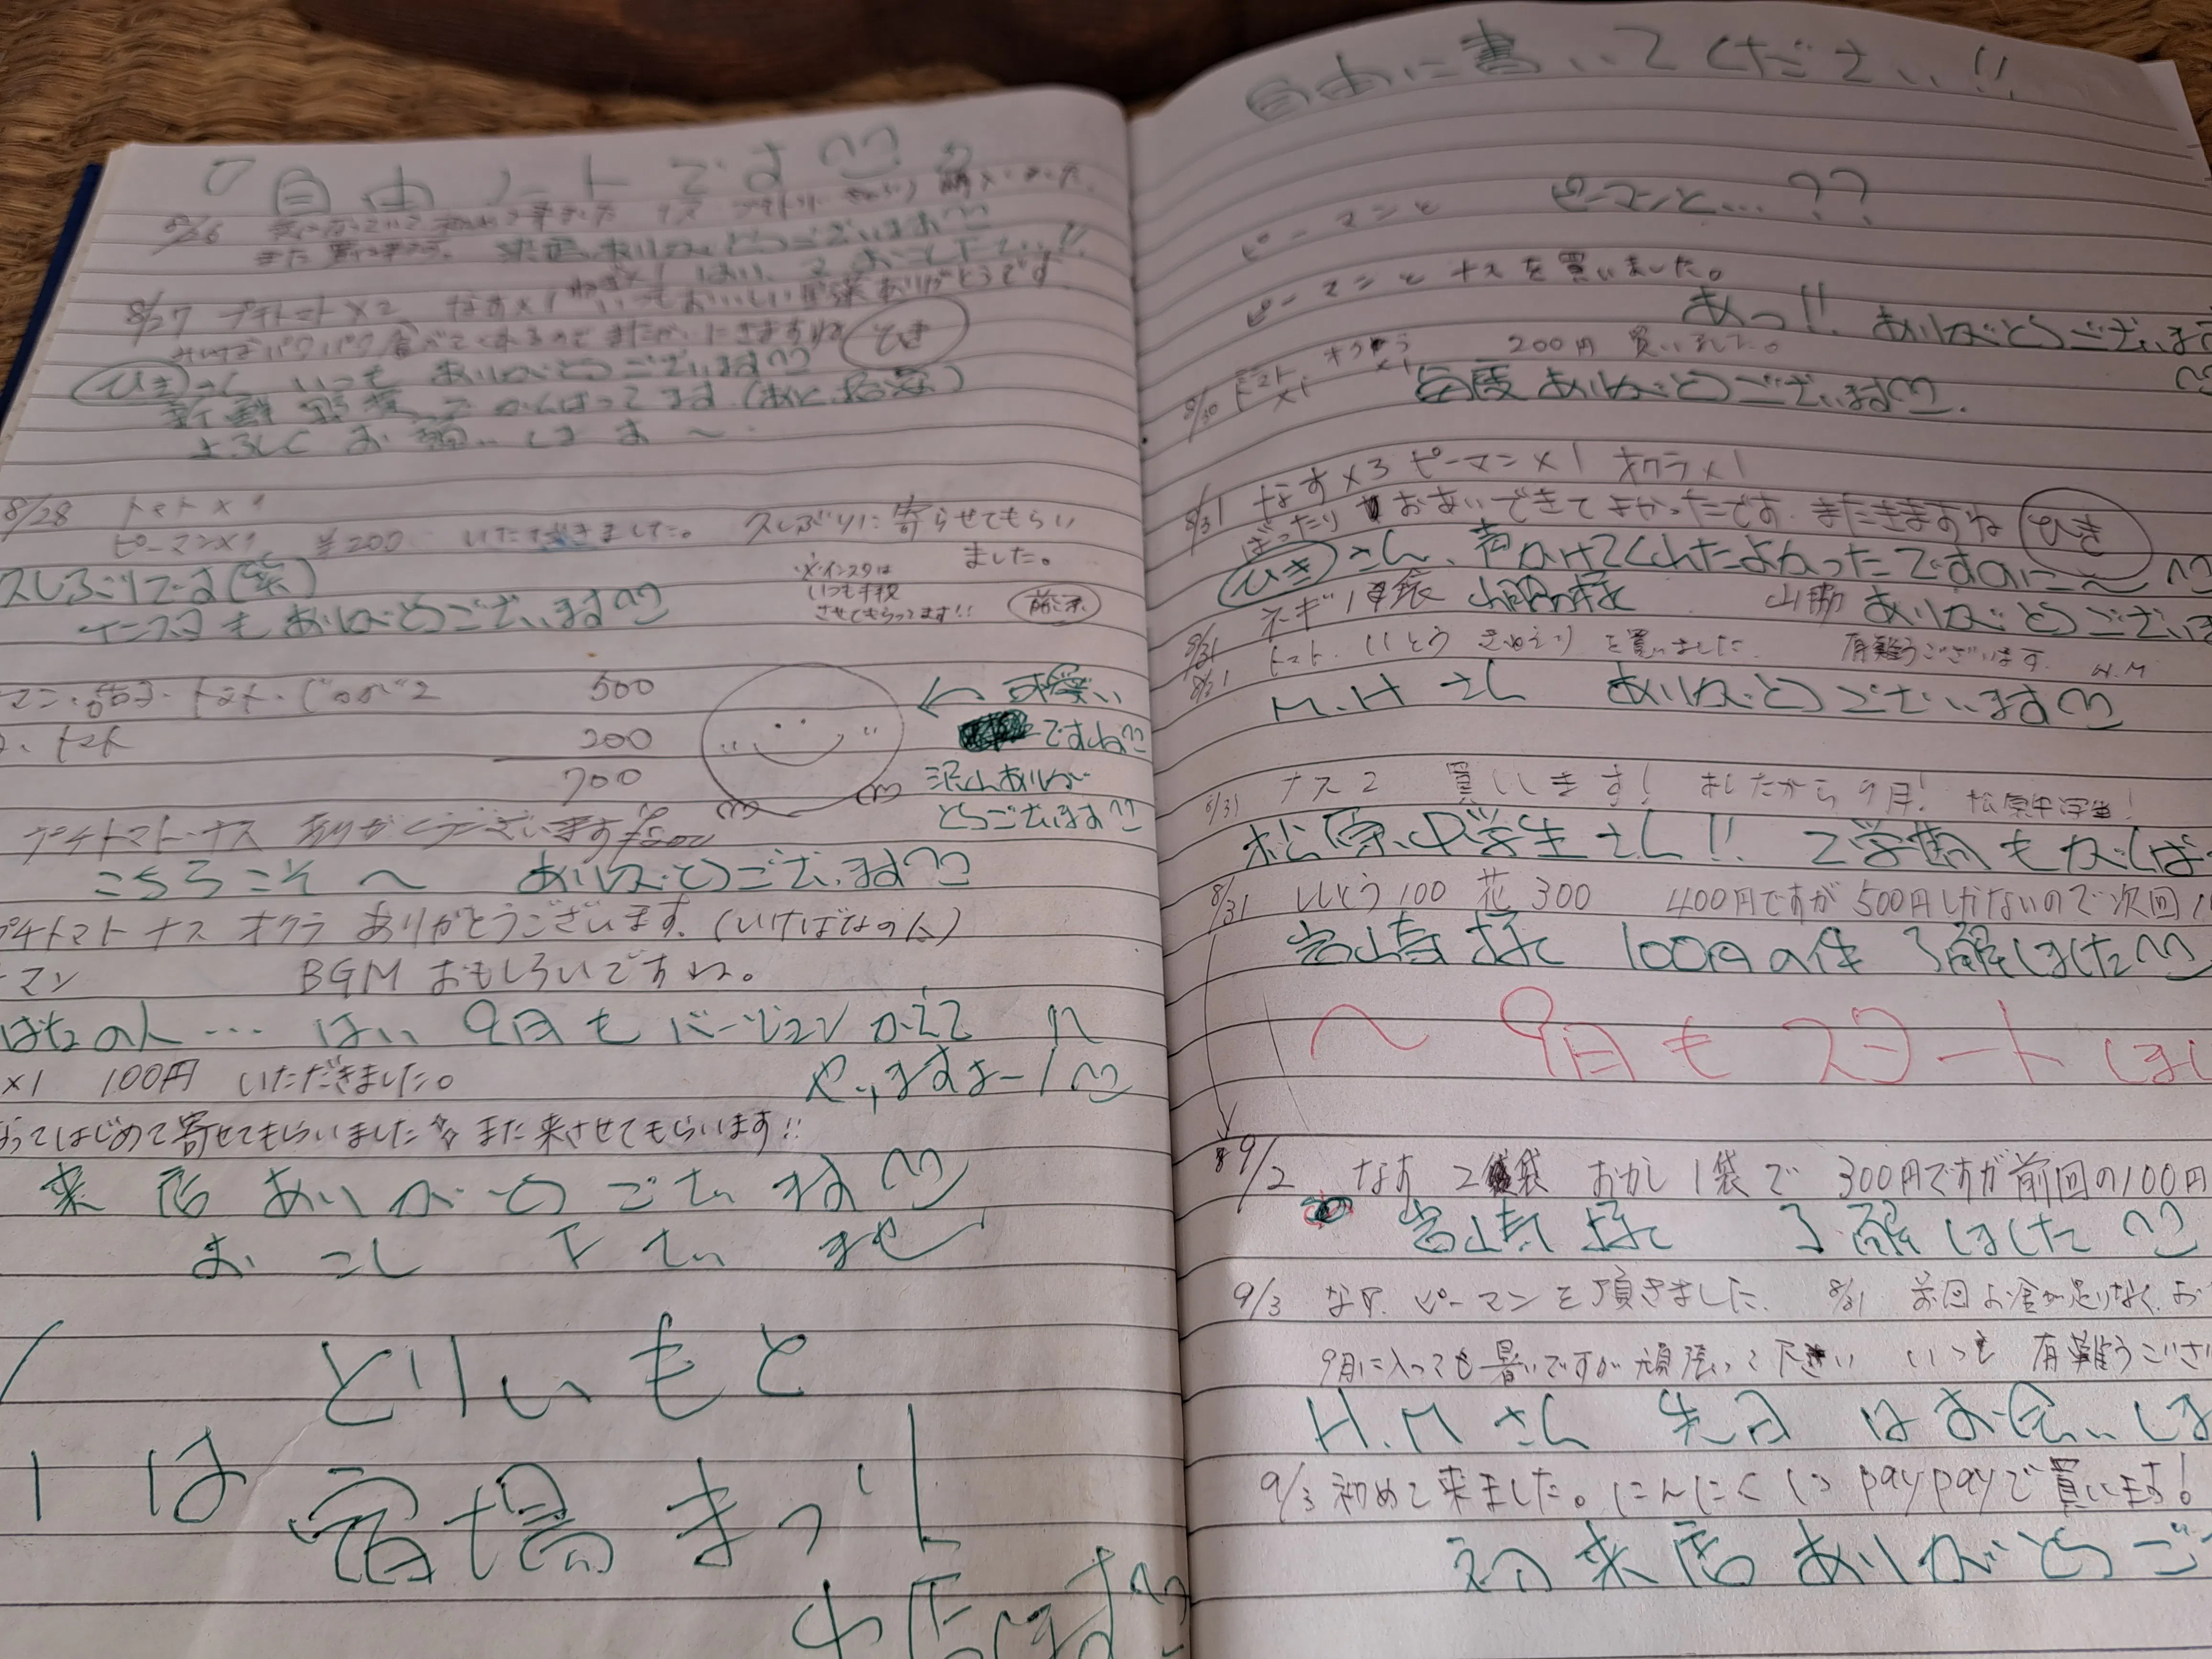 自由ノートです
8/26
また買いに来ます。来店ありがとうございます
8/27 プチトマト×2 なす×1 いつもおいしい野菜ありがとうです
パクパク食べてくれるのでまたかいにきますね ひき
ひきさん いつも ありがとうございます
新鮮野菜 がんばってます
よろしくお願いしま〜
8/28 トマト×1
ピーマン×1 ¥200 いただきました。久しぶりに寄らせてもらい
ました。
※インスタは
いつも拝見
させてもらってます!!
久しぶりです(笑)
インスタもありがとうございます
マン・茄子・トマト・じゃが2 500
トマト 200
700
可愛い
ですね
沢山ありが
とうございます
プチトマト・ナス ありがとうございます
こちらこそ〜 ありがとうございます
プチトマト ナス オクラ ありがとうございます。(いけばなの人)
ーマン BGMおもしろいですね。
ばなの人… はい 9月もバージョンかえて
やりますよー!
×1 100円 いただきました。
ってはじめて寄せてもらいました☆また来させてもらいます!!
来店ありがとうございます
おこし下さいませ
とりいもと
は 宿場まつり
出店します
自由に書いてください!!
ピーマンと ピーマンと…??
ピーマンとナスを買いました。
あっ!! ありがとうございます
8/30 トマト×1 オクラ×1 200円 買いました。
毎度ありがとうございます
8/31 なす×3 ピーマン×1 オクラ×1
ばったりおあいできてよかったです。またきますね ひき
ひきさん、声かけてくれたよかったですのに〜
8/31 ネギ1袋 山脇 ありがとうござい
8/31 トマト、ししとう きゅうり を買いました 有難うございます。H.M
M.Hさん ありがとうございます
8/31 ナス2 買いします! あしたから9月! 松原中学生!
松原中学生さん!! 2学期もがんば
8/31 ししとう100 花300 400円ですが500円しかないので次回
様 100円の件 了解しました
〜9月もスタートしまし
9/2 なす 2袋 おかし1袋で 300円ですが前回の100円
様 了解しました
9/3 なす、ピーマンを頂きました。 8/31 前回お金が足りなく、お
9月に入っても暑いですが頑張って下さい いつも 有難うござい
H.Mさん 先日はお会いしま
9/3 初めて来ました。にんにく paypayで買います!
初来店ありがとうご